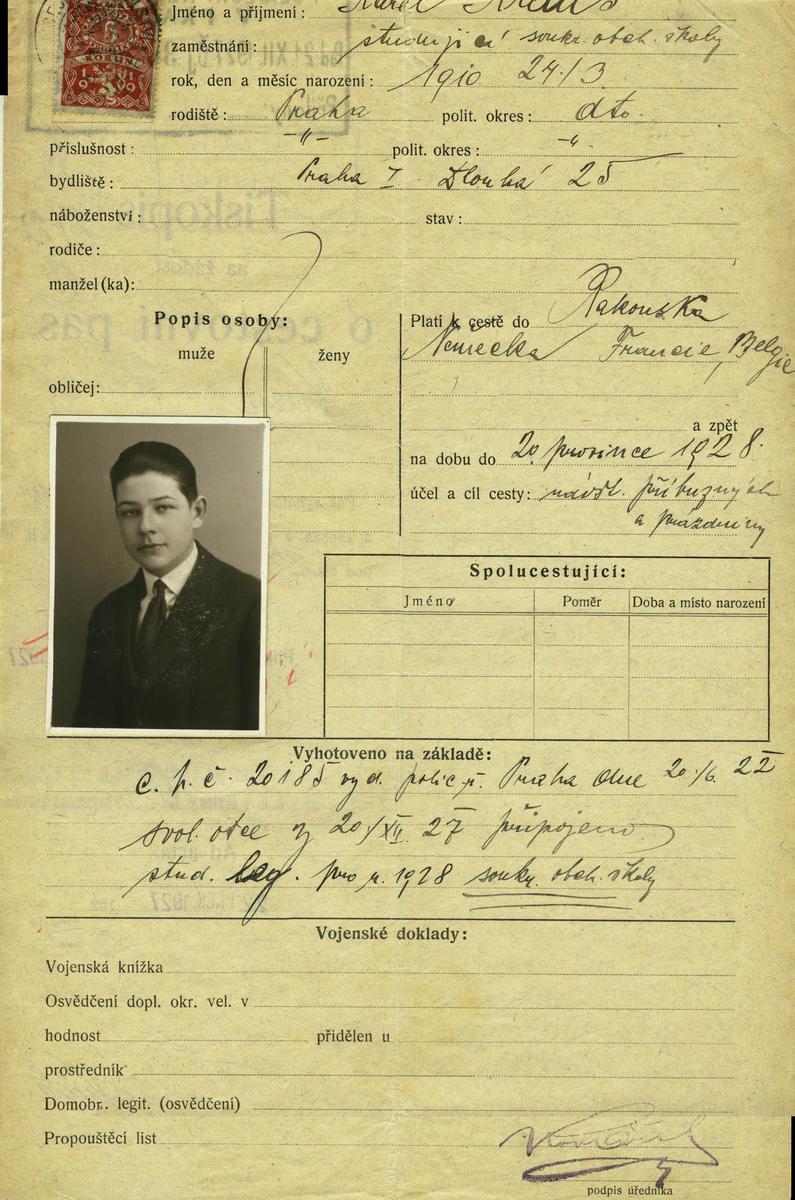 Jméno a příjmení: Karel Kraus
zaměstnání: studující soukr. obch. školy
rok, den a měsíc narození: 1910 24/3
rodiště: Praha polit. okres: dto.
příslušnost: -"- polit. okres: -"-
bydliště: Praha I Dlouhá 25
náboženství: stav:
rodiče:
manžel (ka):
Popis osoby:
muže ženy
obličej:
Platí k cestě do Rakouska
Německa Francie, Belgie
a zpět
na dobu do 20 prosince 1928.
účel a cíl cesty: návšt. příbuzných
a prázdniny
Spolucestující:
Jméno Poměr Doba a místo narození
Vyhotoveno na základě:
c. p. č. 20185 vyd. polic. ř. Praha dne 20/6. 22
svol. otce z 20/XII. 27 připojeno
stud. leg. pro r. 1928 soukr. obch. školy
Vojenské doklady:
Vojenská knížka
Osvědčení dopl. okr. vel. v
hodnost přidělen u
prostředník
Domobr. legit. (osvědčení)
Propouštěcí list
podpis úředníka